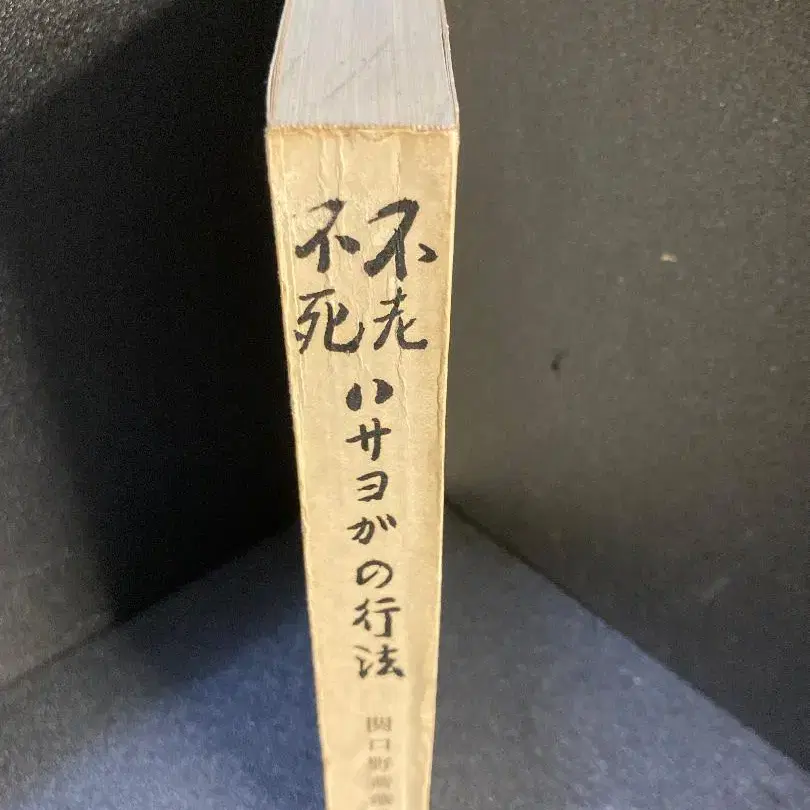 不老
不死
ハサヨガの行法
関口野薔薇